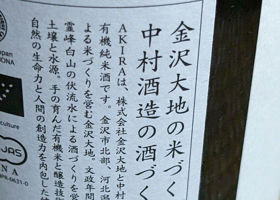 金沢大地の米づく
中村酒造の酒づく
AKIRAは、株式会社金沢大地と中村
有機純米酒です。金沢市北部、河北潟
よる米づくりを営む金沢大地。文政年間
霊峰白山の伏流水による酒づくりを営
土壌と水源。手の育んだ有機米と醸造技
自然の生命力と人間の創造力を内包した
apan
ONA
culture
JAS